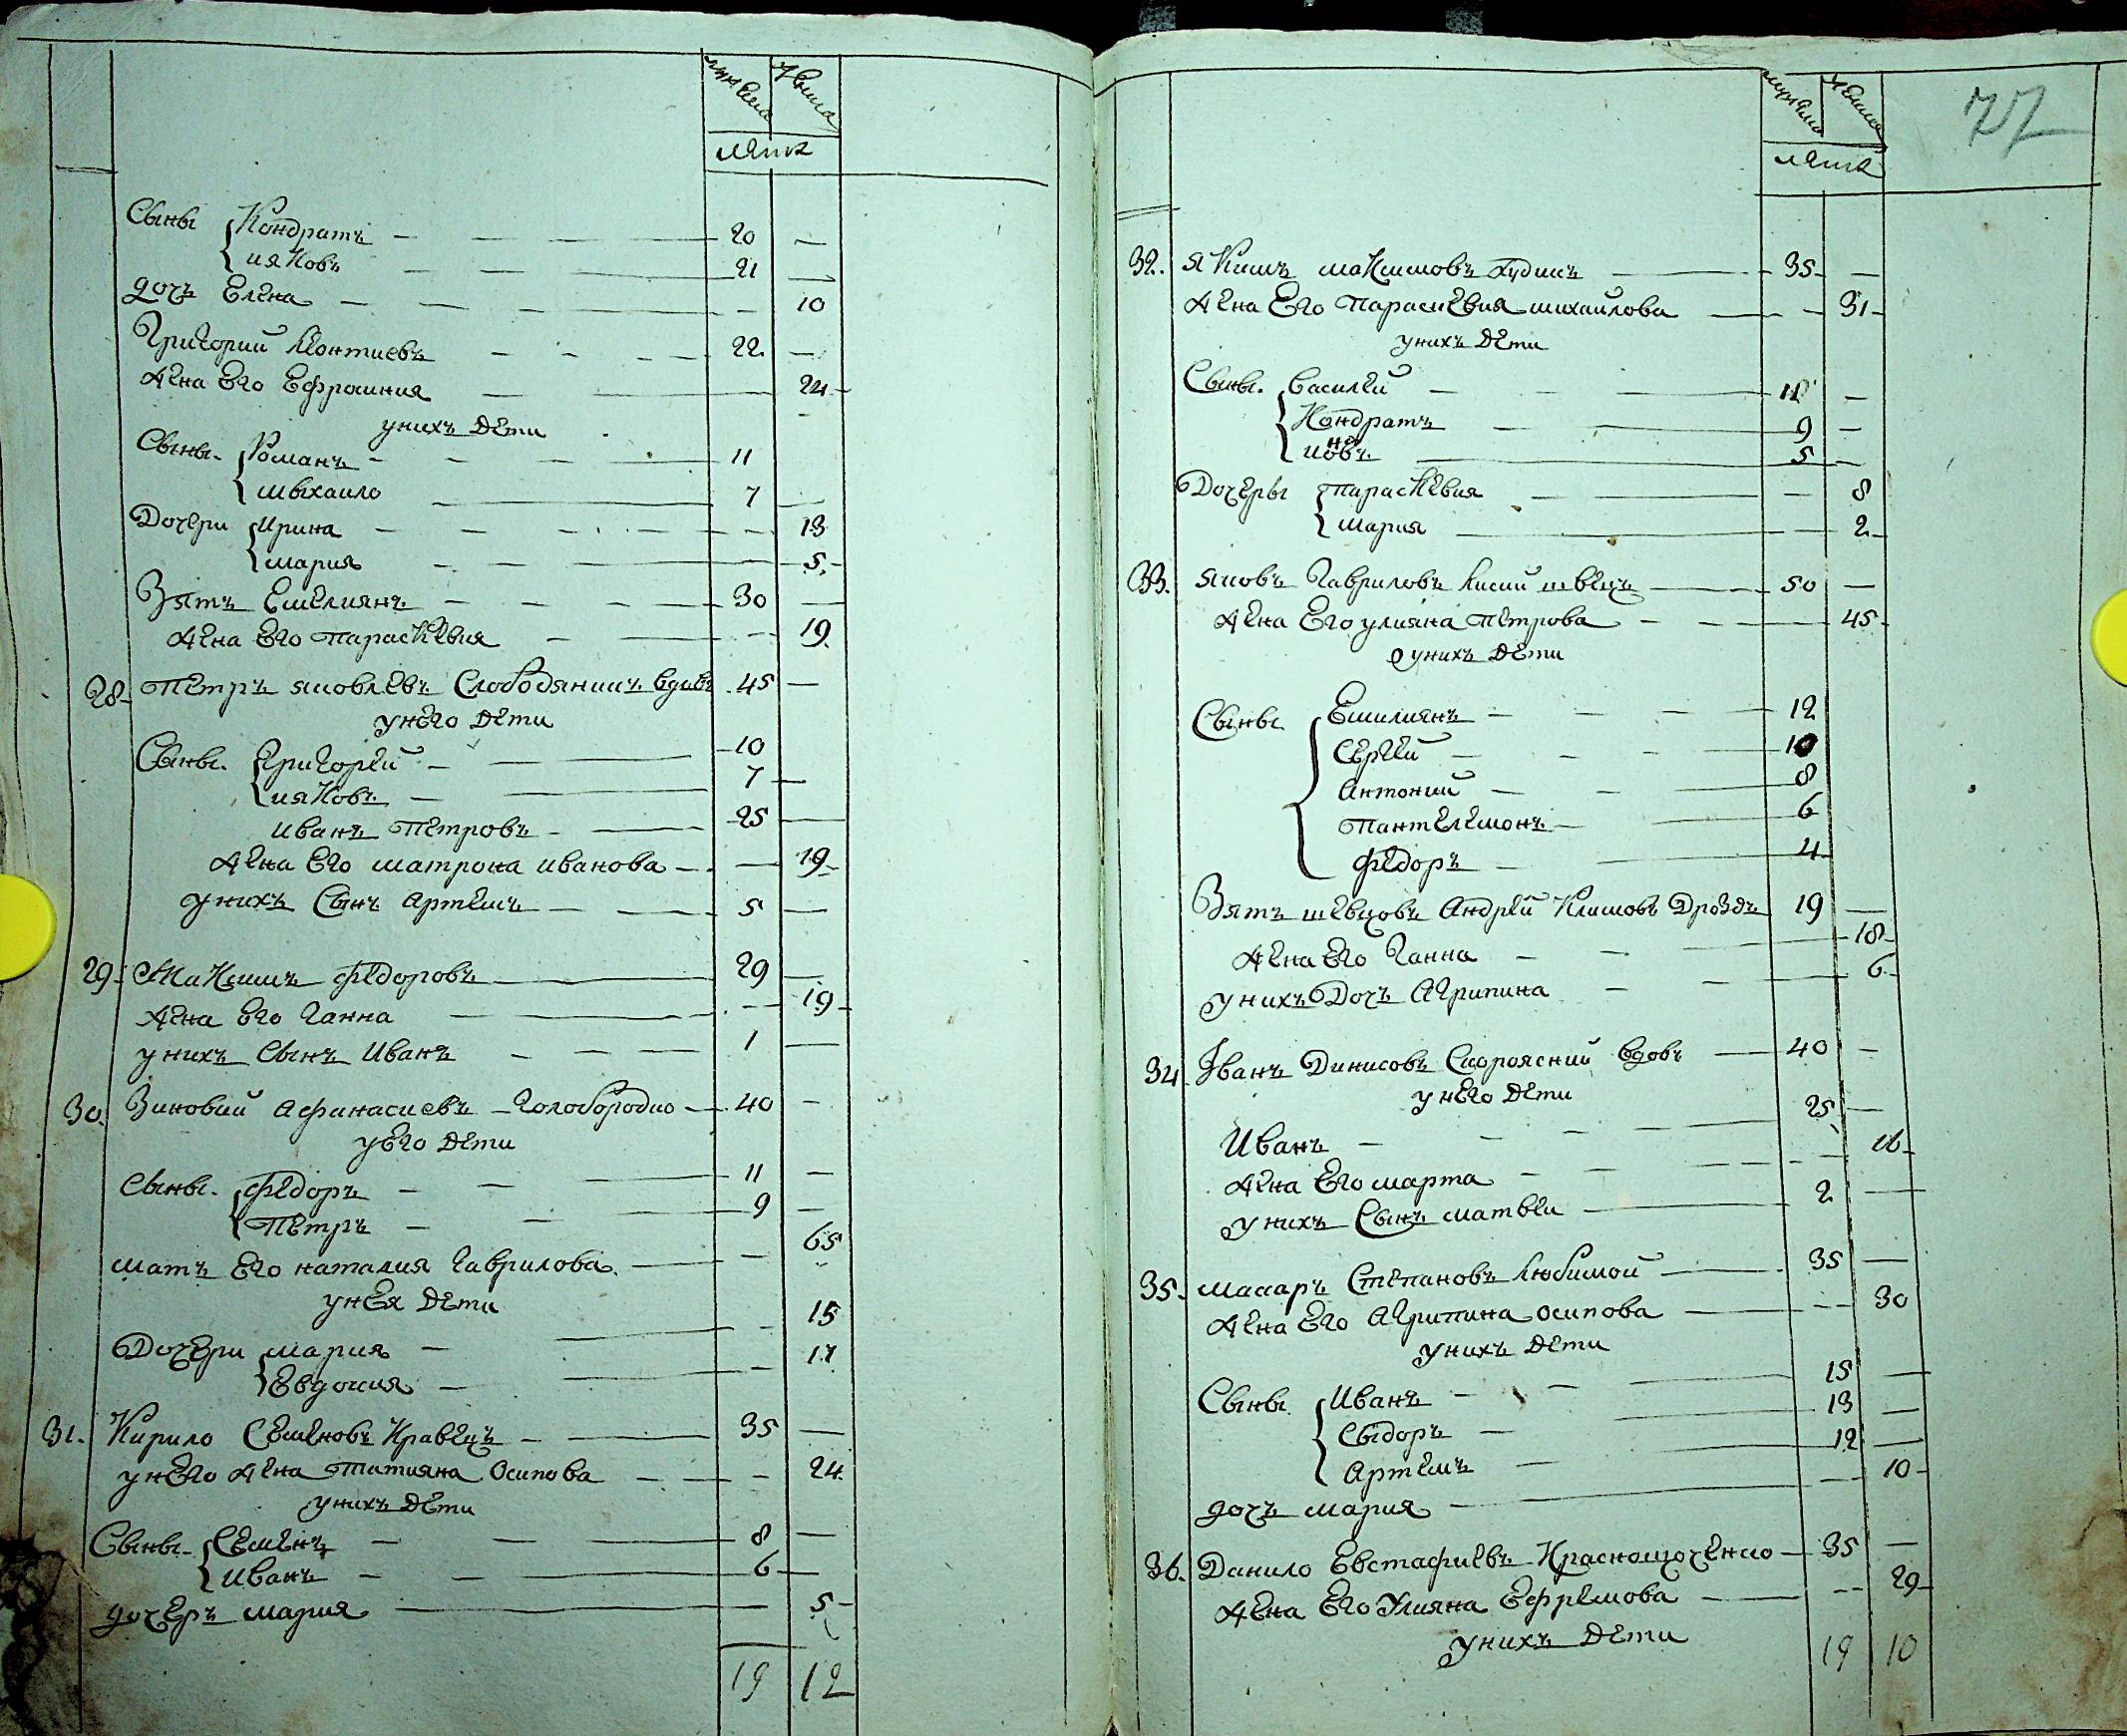 мужска женска
лета
Сыны Кондратъ 20 —
ияковъ 21 —
дочъ Елена — 10
Григорий Леонтиевъ 22 —
жена Его Ефросиния 24
унихъ дети
Сыны Романъ 11
Мыхаило 7 —
Дочери Ирина — 13
Мария — 5
Зятъ Емелиянъ 30 —
жена Его Параскевия — 19
28 Петръ яковлевъ Слободяникъ вдовъ 45 —
унего дети
Сыны Григорей 10
ияковъ 7 —
Иванъ Петровъ 25 —
жена Его матрона иванова — 19
унихъ Сынъ Артемъ 5 —
29 Максимъ Федоровъ 29 —
жена Его Ганна — 19
унихъ Сынъ Иванъ 1 —
30 Зиновий Афанасиевъ Голобородко 40 —
уего дети
Сыны Федоръ 11 —
Петръ 9 —
матъ Его наталия Гаврилова — 65
унея дети
Дочери мария — 15
Евдокия — 11
31 Кирило Семеновъ Кравецъ 35 —
унего жена Татияна Осипова — 24
унихъ дети
Сыны Семенъ 8 —
Иванъ 6 —
дочеръ мария 5
19 12
мужска женска
лета
77
32 якимъ максимовъ 35 —
жена Его Параскевия михаилова — 31
унихъ дети
Сыны Василей 11 —
Кондратъ 9 —
иовъ 5 —
Дочеры Параскевия — 8
Мария — 2
33 яковъ Гавриловъ Лисий швецъ 50 —
жена Его улияна Петрова — 45
унихъ дети
Сыны Емилиянъ 12
Сергей 10
Антоний 8
Пантелемонъ 6
Федоръ 4
Зятъ шевцовъ Андрей Климовъ Дроздъ 19 —
жена Его Ганна — 18
унихъ Дочъ Агрипина — 6
34 Иванъ Динисовъ Скороясний вдовъ 40 —
унего дети
Иванъ 25 —
жена Его марта — 16
унихъ Сынъ матвеи 2 —
35 макаръ Степановъ Любимой 35 —
жена Его Агрипина осипова — 30
унихъ дети
Сыны Иванъ 15 —
Сыдоръ 13 —
Артемъ 12 —
дочъ мария — 10
36 Данило Евстафиевъ Краснощоченко 35 —
жена Его Улияна Ефремова — 29
унихъ дети
19 10